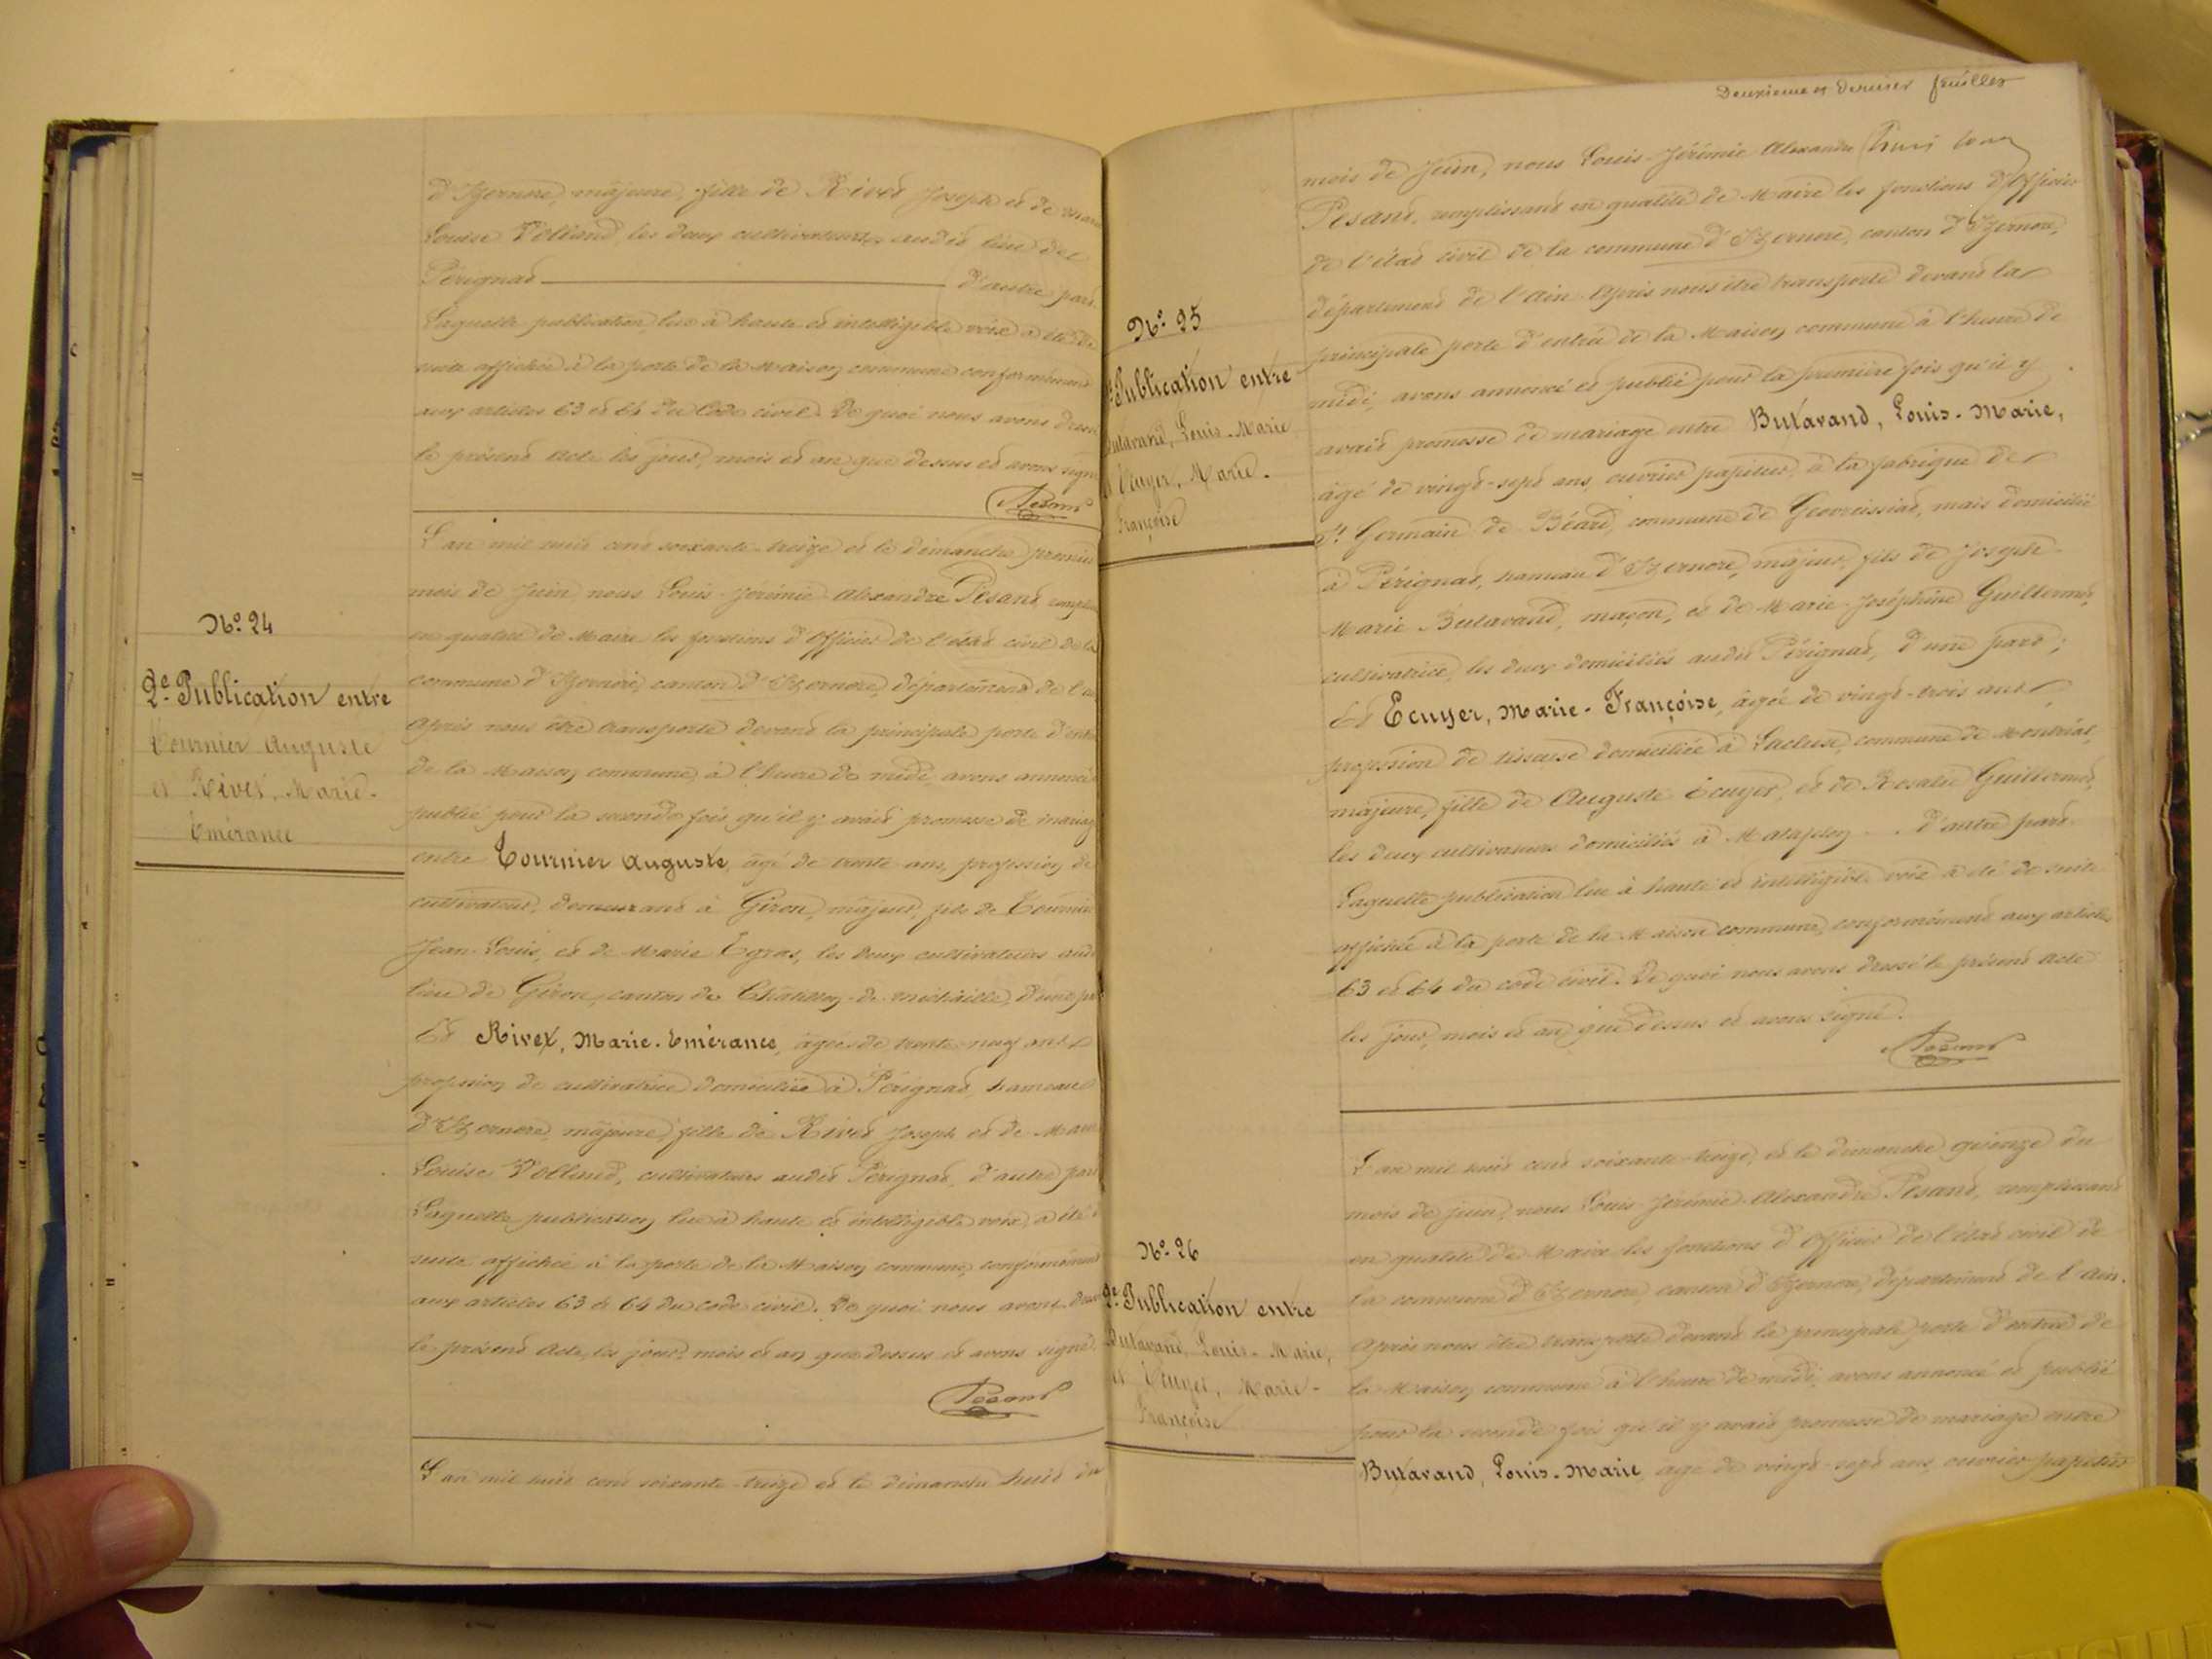 d'Izernore, majeure, fille de Rivet Joseph et de Marie
Louise Volland, les deux cultivateurs audit lieu de
Pérignat d'autre part.
Laquelle publication lue à haute et intelligible voix a été de
suite affichée à la porte de la Maison commune conformément
aux articles 63 et 64 du Code civil. De quoi nous avons dressé
le présent acte les jour, mois et an que dessus et avons signé
Pesant
N° 24
2e Publication entre
Tournier Auguste
et Rivet, Marie-
Emérance
L'an mil huit cent soixante-treize et le dimanche premier
mois de Juin nous Louis-Jérémie Alexandre Pesant,
en qualité de Maire les fonctions d'Officier de l'état civil de la
commune d'Izernore, canton d'Izernore, département de l'ain
Après nous être transporté devant la principale porte d'entrée
de la Maison commune à l'heure de midi, avons annoncé
publié pour la seconde fois qu'il y avait promesse de mariage
entre Tournier Auguste, âgé de trente ans, profession de
cultivateur, demeurant à Giron, majeur, fils de Tournier
Jean-Louis, et de Marie Egras, les deux cultivateurs audit
lieu de Giron, canton de Châtillon-de-Michaille, d'une part
Et Rivet, Marie-Emérance, âgée de trente-neuf ans
profession de cultivatrice domiciliée à Pérignat, hameau
d'Izernore, majeure, fille de Rivet Joseph et de Marie
Louise Volland, cultivateurs audit Pérignat, d'autre part
Laquelle publication lue à haute et intelligible voix, a été
suite affichée à la porte de la Maison commune, conformément
aux articles 63 et 64 du code civil. De quoi nous avons dressé
le présent acte, les jour, mois et an que dessus et avons signé
Pesant
L'an mil huit cent soixante-treize et le dimanche huit du
Deuxième et dernier feuillet
mois de Juin, nous Louis-Jérémie Alexandre
Pesant, remplissant en qualité de Maire les fonctions d'Officier
de l'état civil de la commune d'Izernore, canton d'Izernore,
département de l'Ain. Après nous être transporté devant la
principale porte d'entrée de la Maison commune à l'heure de
midi, avons annoncé et publié pour la première fois qu'il y
avait promesse de mariage entre Butavand, Louis-Marie,
âgé de vingt-sept ans, ouvrier papetier, à la fabrique de
St Germain de Béard, commune de Géovreissiat, mais domicilié
à Pérignat, hameau d'Izernore, majeur, fils de Joseph-
Marie Butavand, maçon, et de Marie-Joséphine Guillermet,
cultivatrice, les deux domiciliés audit Pérignat, d'une part;
Et Ecuyer, Marie-Françoise, âgée de vingt-trois ans
profession de tisseuse domiciliée à Lacluse, commune de Montréal,
majeure, fille de Auguste Ecuyer, et de Rosalie Guillermet,
les deux cultivateurs domiciliés à Matafelon d'autre part.
Laquelle publication lue à haute et intelligible voix a été de suite
affichée à la porte de la Maison commune, conformément aux articles
63 et 64 du code civil. De quoi nous avons dressé le présent acte
les jour, mois et an que dessus et avons signé.
Pesant
N° 25
Publication entre
Butavand, Louis-Marie
Ecuyer, Marie-
Françoise
L'an mil huit cent soixante-treize, et le dimanche quinze du
mois de juin, nous Louis-Jérémie-Alexandre Pesant, remplissant
en qualité de Maire les fonctions d'Officier de l'état civil de
la commune d'Izernore, canton d'Izernore, département de l'Ain.
Après nous être transporté devant la principale porte d'entrée de
la Maison commune à l'heure de midi, avons annoncé et publié
pour la seconde fois qu'il y avait promesse de mariage entre
Butavand, Louis-Marie, âgé de vingt-sept ans, ouvrier papetier
N° 26
2e Publication entre
Butavand, Louis-Marie,
et Ecuyer, Marie-
Françoise